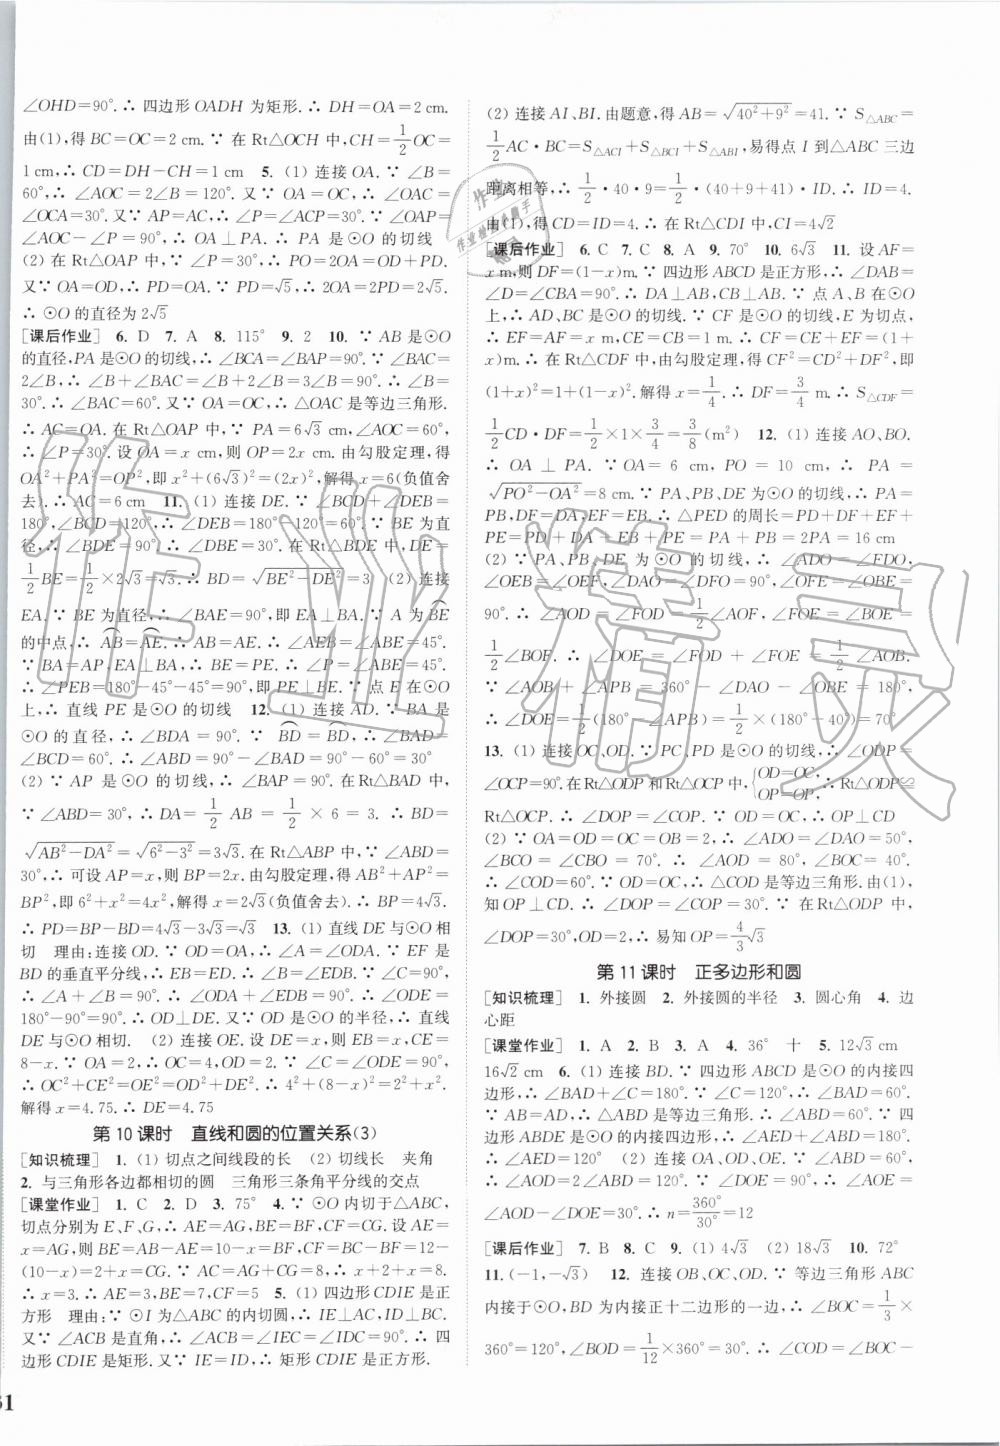 ∠OHD=90°.∴ 四边形 OADH 为矩形.∴ DH=OA=2 cm.
由(1),得 BC=OC=2 cm.∵ 在 Rt△OCH 中,CH=1/2 OC=
1 cm,∴ CD=DH-CH=1 cm　5. (1) 连接 OA.∵ ∠B=
60°,∴ ∠AOC=2∠B=120°.又∵ OA=OC,∴ ∠OAC=
∠OCA=30°.又∵ AP=AC,∴ ∠P=∠ACP=30°.∴ ∠OAP=
∠AOC-∠P=90°,∴ OA⊥PA.∴ PA是⊙O 的切线
(2) 在 Rt△OAP 中,∵ ∠P=30°,∴ PO=2OA=OD+PD.
又∵ OA=OD,∴ PD=OA.∵ PD=√5,∴ 2OA=2PD=2√5.
∴ ⊙O 的直径为 2√5
[课后作业]　6. D　7. A　8. 115°　9. 2　10. ∵ AB 是⊙O
的直径,PA 是⊙O 的切线,∴ ∠BCA=∠BAP=90°.∵ ∠BAC=
2∠B,∴ ∠B+∠BAC=∠B+2∠B=3∠B=90°.∴ ∠B=
30°.∴ ∠BAC=60°.又∵ OA=OC,∴ △OAC 是等边三角形.
∴ AC=OA.在 Rt△OAP 中,∵ PA=6√3 cm,∠AOC=60°,
∴ ∠P=30°.设 OA=x cm,则 OP=2x cm.由勾股定理,得
OA²+PA²=OP²,即 x²+(6√3)²=(2x)²,解得 x=6(负值舍
去).∴ AC=6 cm　11. (1) 连接 DE.∵ ∠BCD+∠DEB=
180°,∠BCD=120°,∴ ∠DEB=180°-120°=60°.∵ BE 为直
径,∴ ∠BDE=90°.∴ ∠DBE=30°.在 Rt△BDE 中,DE=
1/2 BE=1/2×2√3=√3.∴ BD=√(BE²-DE²)=3　(2) 连接
EA.∵ BE 为直径,∴ ∠BAE=90°,即 EA⊥BA.∵ A 为 BE
的中点,∴ AB=AE.∴ AB=AE.∴ ∠ABE=∠AEB=45°.
∵ BA=AP,EA⊥BA,∴ BE=PE.∴ ∠P=∠ABE=45°.
∴ ∠PEB=180°-45°-45°=90°,即 PE⊥BE.∵ 点 E 在⊙O
上,∴ 直线 PE 是⊙O 的切线　12. (1) 连接 AD.∵ BA 是
⊙O 的直径,∴ ∠BDA=90°.∵ BD=BD,∴ ∠BAD=
∠BCD=60°.∴ ∠ABD=90°-∠BAD=90°-60°=30°
(2) ∵ AP 是⊙O 的切线,∴ ∠BAP=90°.在 Rt△BAD 中,
∵ ∠ABD=30°,∴ DA=1/2 AB=1/2×6=3.∴ BD=
√(AB²-DA²)=√(6²-3²)=3√3.在 Rt△ABP 中,∵ ∠ABD=
30°,∴ 可设 AP=x,则 BP=2x.由勾股定理,得 AB²+AP²=
BP²,即 6²+x²=4x²,解得 x=2√3(负值舍去).∴ BP=4√3.
∴ PD=BP-BD=4√3-3√3=√3　13. (1) 直线 DE 与⊙O 相
切　理由:连接 OD.∵ OD=OA,∴ ∠A=∠ODA.∵ EF 是
BD 的垂直平分线,∴ EB=ED.∴ ∠B=∠EDB.∵ ∠C=90°,
∴ ∠A+∠B=90°.∴ ∠ODA+∠EDB=90°.∴ ∠ODE=
180°-90°=90°.∴ OD⊥DE.又∵ OD 是⊙O 的半径,∴ 直线
DE 与⊙O 相切.　(2) 连接 OE.设 DE=x,则 EB=x,CE=
8-x.∵ OA=2,∴ OC=4,OD=2.∵ ∠C=∠ODE=90°,
∴ OC²+CE²=OE²=OD²+DE².∴ 4²+(8-x)²=2²+x²,
解得 x=4.75.∴ DE=4.75
第 10 课时　直线和圆的位置关系(3)
[知识梳理]　1. (1) 切点之间线段的长　(2) 切线长　夹角
2. 与三角形各边都相切的圆　三角形三条角平分线的交点
[课堂作业]　1. C　2. D　3. 75°　4. ∵ ⊙O 内切于△ABC,
切点分别为 E、F、G,∴ AE=AG,BE=BF,CF=CG.设 AE=
x=AG,则 BE=AB-AE=10-x=BF.∴ CF=BC-BF=12-
(10-x)=2+x=CG.∵ AC=AG+CG=x+2+x=8.
∴ x=3.∴ AE=3,BE=7,CF=5　5. (1) 四边形 CDIE 是正
方形　理由:∵ ⊙I 为△ABC 的内切圆,∴ IE⊥AC,ID⊥BC.
又∵ ∠ACB 是直角,∴ ∠ACB=∠IEC=∠IDC=90°.∴ 四
边形 CDIE 是矩形.又∵ IE=ID,∴ 矩形 CDIE 是正方形.
(2) 连接 AI、BI.由题意,得 AB=√(40²+9²)=41.∵ S△ABC=
1/2 AC·BC=S△ACI+S△BCI+S△ABI,易得点 I 到△ABC 三边
距离相等,∴ 1/2·40·9=1/2·(40+9+41)·ID.∴ ID=4.
由(1),得 CD=ID=4.∴ 在 Rt△CDI 中,CI=4√2
[课后作业]　6. C　7. C　8. A　9. 70°　10. 6√3　11. 设 AF=
x m,则 DF=(1-x)m.∵ 四边形 ABCD 是正方形,∴ ∠DAB=
∠D=∠ABC=90°.∴ DA⊥AB,CB⊥AB.∵ 点 A、B 在⊙O
上,∴ AD、BC 是⊙O 的切线.∵ CF 是⊙O 的切线,E 为切点,
∴ EF=AF=x m,CE=CB=1 m.∴ CF=CE+EF=(1+
x)m.∴ 在 Rt△CDF 中,由勾股定理,得 CF²=CD²+DF²,即
(1+x)²=1+(1-x)².解得 x=1/4.∴ DF=3/4 m.∴ S△CDF=
1/2 CD·DF=1/2×1×3/4=3/8(m²)　12. (1) 连接 AO、BO.
∴ OA⊥PA.∵ OA=6 cm,PO=10 cm,∴ PA=
√(PO²-OA²)=8 cm.∵ PA、PB、DE 为⊙O 的切线,∴ PA=
PB,DF=DA,EF=EB.∴ △PED 的周长=PD+DF+EF+
PE=PD+DA+EB+PE=PA+PB=2PA=16 cm
(2) ∵ PA、PB、DE 为⊙O 的切线,∴ ∠ADO=∠EDO,
∠OEB=∠OEF,∠DAO=∠DFO=90°,∠OFE=∠OBE=
90°.∴ ∠AOD=∠FOD=1/2∠AOF,∠FOE=∠BOE=
1/2∠BOF.∴ ∠DOE=∠FOD+∠FOE=1/2∠AOB.
∵ ∠AOB+∠APB=360°-∠DAO-∠OBE=180°,
∴ ∠DOE=1/2(180°-∠APB)=1/2×(180°-40°)=70°
13. (1) 连接 OC、OD.∵ PC、PD 是⊙O 的切线,∴ ∠ODP=
∠OCP=90°.在 Rt△ODP 和 Rt△OCP 中,{OD=OC, OP=OP,∴ Rt△ODP≌
Rt△OCP.∴ ∠DOP=∠COP.∵ OD=OC,∴ OP⊥CD
(2) ∵ OA=OD=OC=OB=2,∴ ∠ADO=∠DAO=50°,
∠BCO=∠CBO=70°.∴ ∠AOD=80°,∠BOC=40°.
∴ ∠COD=60°.∵ OD=OC,∴ △COD 是等边三角形.由(1),
知 OP⊥CD,∴ ∠DOP=∠COP=30°.∴ 在 Rt△ODP 中,
∠DOP=30°,OD=2.∴ 易知 OP=4/3√3
第 11 课时　正多边形和圆
[知识梳理]　1. 外接圆　2. 外接圆的半径　3. 圆心角　4. 边
心距
[课堂作业]　1. A　2. B　3. A　4. 36°　十　5. 12√3 cm
16√2 cm　6. (1) 连接 BD.∵ 四边形 ABCD 是⊙O 的内接四
边形,∴ ∠BAD+∠C=180°.∵ ∠C=120°,∴ ∠BAD=60°.
∵ AB=AD,∴ △ABD 是等边三角形.∴ ∠ABD=60°.∵ 四
边形 ABDE 是⊙O 的内接四边形,∴ ∠AED+∠ABD=180°.
∴ ∠AED=120°　(2) 连接 OA、OD、OE.∵ ∠ABD=60°,
∴ ∠AOD=2∠ABD=120°.∵ ∠DOE=90°,∴ ∠AOE=
∠AOD-∠DOE=30°.∴ n=360°/30°=12
[课后作业]　7. B　8. C　9. (1) 4√3　(2) 18√3　10. 72°
11. (-1,-√3)　12. 连接 OB、OC、OD.∵ 等边三角形 ABC
内接于⊙O,BD 为内接正十二边形的一边,∴ ∠BOC=1/3×
360°=120°,∠BOD=1/12×360°=30°.∴ ∠COD=∠BOC-
61
作业精灵